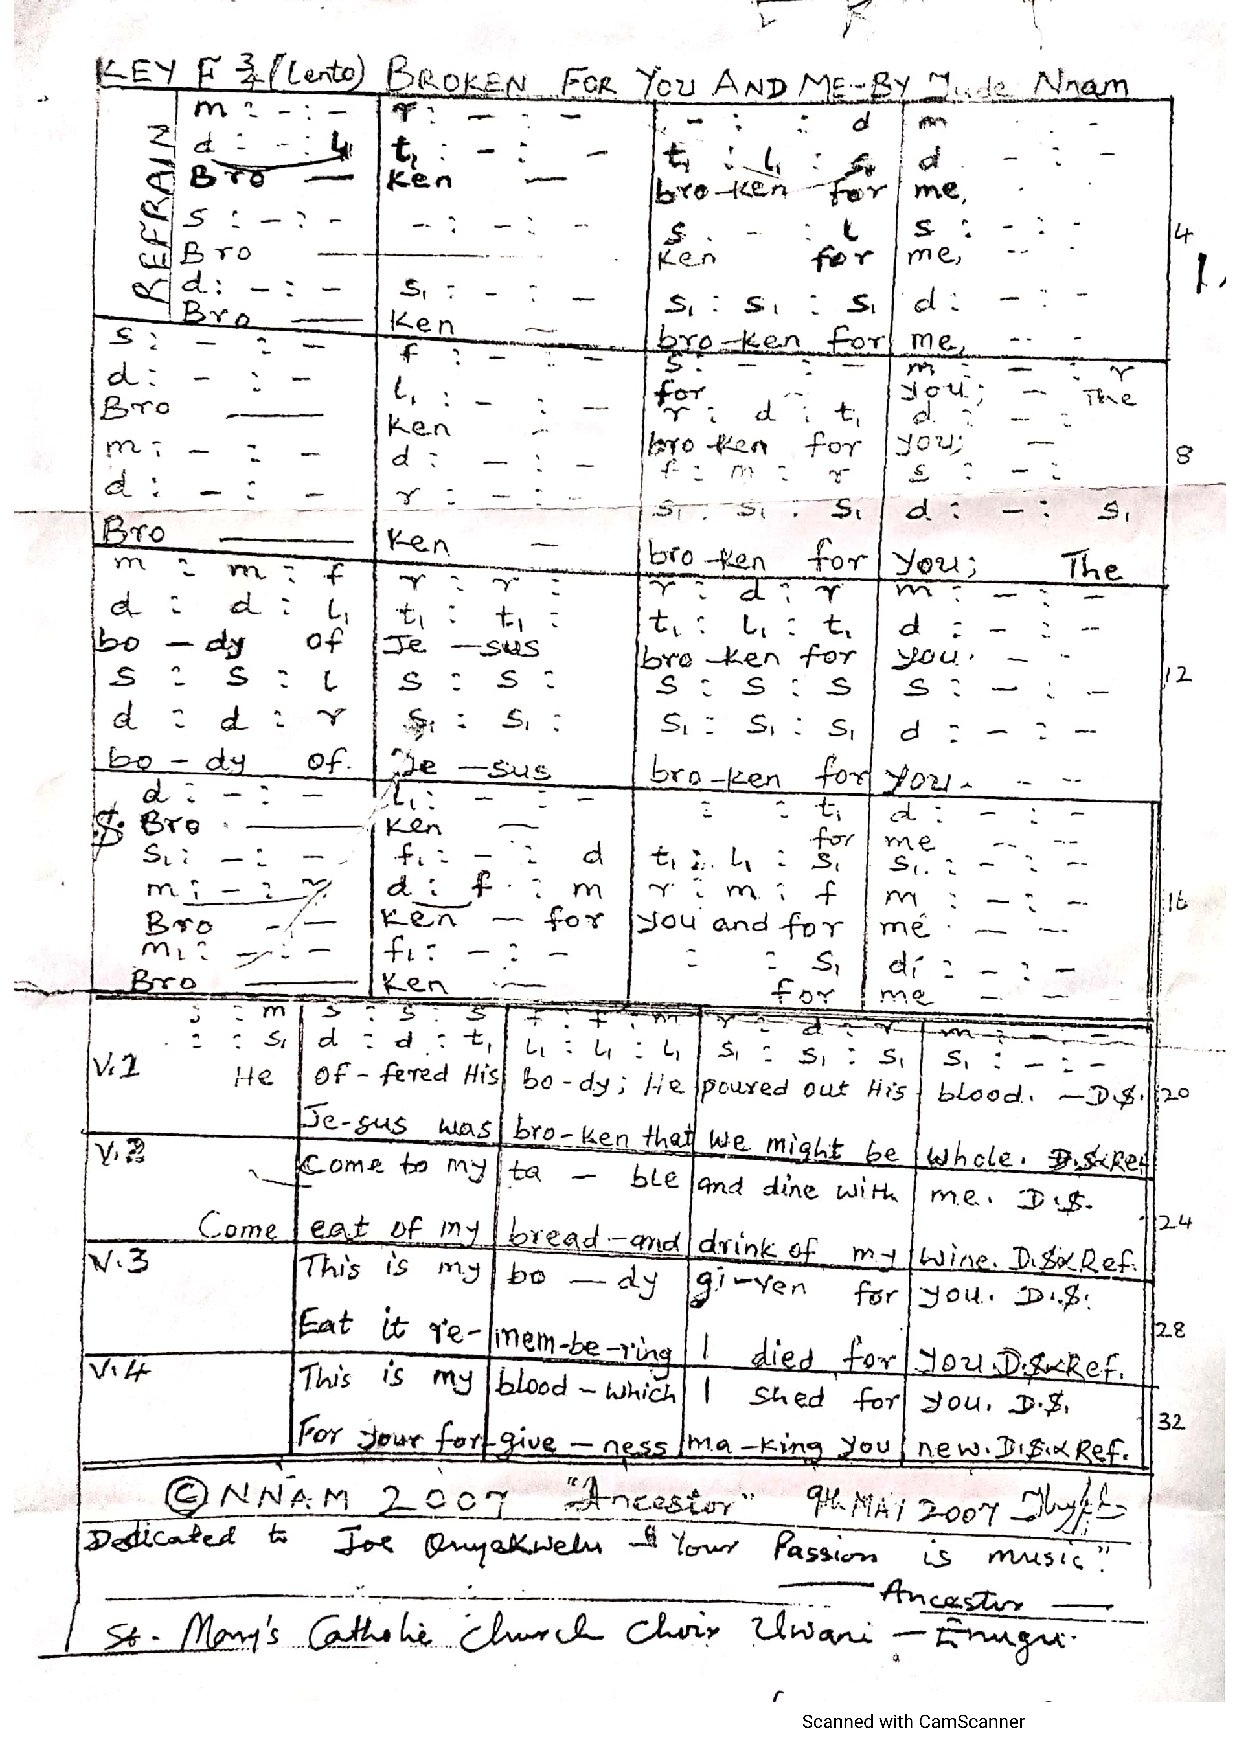 KEY F 3/4 (Lento) BROKEN FOR YOU AND ME-BY Jude Nnam
REFRAIN
m : - : - | r : - : - | - : : d | m - : -
d : - : l₁ | t₁ : - : - | t₁ : l₁ : s₁ | d - : -
Bro — | ken — | bro-ken for | me,
s : - : - | - : - : - | s : - : l | s : - : - 4
Bro — | ken for | me,
d : - : - | s₁ : - : - | s₁ : s₁ : s₁ | d : - : -
Bro — | ken — | bro-ken for | me,
s : - : - | f : - : - | s : - : - | m : - : r
for | you; - The
d : - : - | l₁ : - : - | r : d : t₁ | d : - :
Bro — | ken - | bro-ken for | you; —
m : - : - | d : - : - | f : m : r | s : - : 8
d : - : - | r : - : - | s₁ : s₁ : s₁ | d : - : s₁
Bro — | ken — | bro-ken for | you; The
m : m : f | r : r : | r : d : r | m : - : -
d : d : l₁ | t₁ : t₁ : | t₁ : l₁ : t₁ | d : - : -
bo - dy of | Je - sus | bro-ken for | you. - -
s : s : l | s : s : | s : s : s | s : - : - 12
d : d : r | s₁ : s₁ : | s₁ : s₁ : s₁ | d : - : -
bo - dy of. | Je - sus | bro-ken for | you. - -
d : - : - | l₁ : - : - | : : t₁ | d : - : -
$ Bro — | ken — | for | me
s₁ : - : - | f₁ : - : d | t₁ : l₁ : s₁ | s₁ : - : -
m : - : r | d : f : m | r : m : f | m : - : - 16
Bro - — | ken — for | you and for | me - — -
m₁ : - : - | f₁ : - : - | : : s₁ | d : - : -
Bro — | ken — | for | me - - -
: : m | s : s : s | f : f : m | r : d : r | m : - : -
: : s₁ | d : d : t₁ | l₁ : l₁ : l₁ | s₁ : s₁ : s₁ | s₁ : - : -
V.1 He | of-fered His | bo-dy; He | poured out His | blood. - D.$. 20
Je-sus was | bro-ken that | we might be | whole. D.$&Ref
V.2 Come to my | ta - ble | and dine with | me. D.$.
Come | eat of my | bread-and | drink of my | wine. D.$&Ref. 24
V.3 This is my | bo — dy | gi-ven for | you. D.$.
Eat it re- | mem-be-ring | I died for | you D.$&Ref. 28
V.4 This is my | blood-which | I shed for | you. D.$.
For your for- | give-ness | ma-king you | new. D.$.&Ref. 32
© NNAM 2007 "Ancestor" 9th MAY 2007
Dedicated to Joe Onyekwelu - "Your Passion is music."
— Ancestor —
St. Mary's Catholic Church Choir Uwani - Enugu.
Scanned with CamScanner